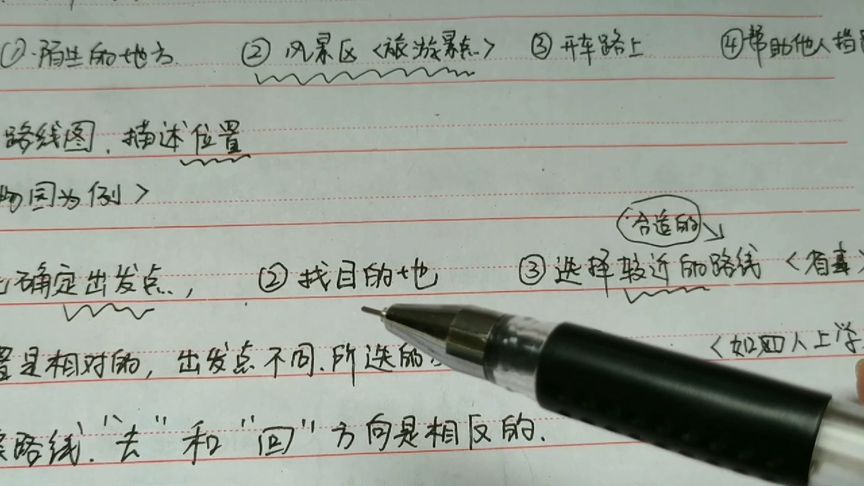 ① 陌生的地方 ② 风景区〈旅游景点〉 ③ 开车路上 ④帮助他人指
路线图,描述位置
物园为例〉
合适的
确定出发点, ② 找目的地 ③ 选择较近的路线 〈有
置是相对的,出发点不同.所选的 〈如四人上学
路线."去"和"回"方向是相反的.